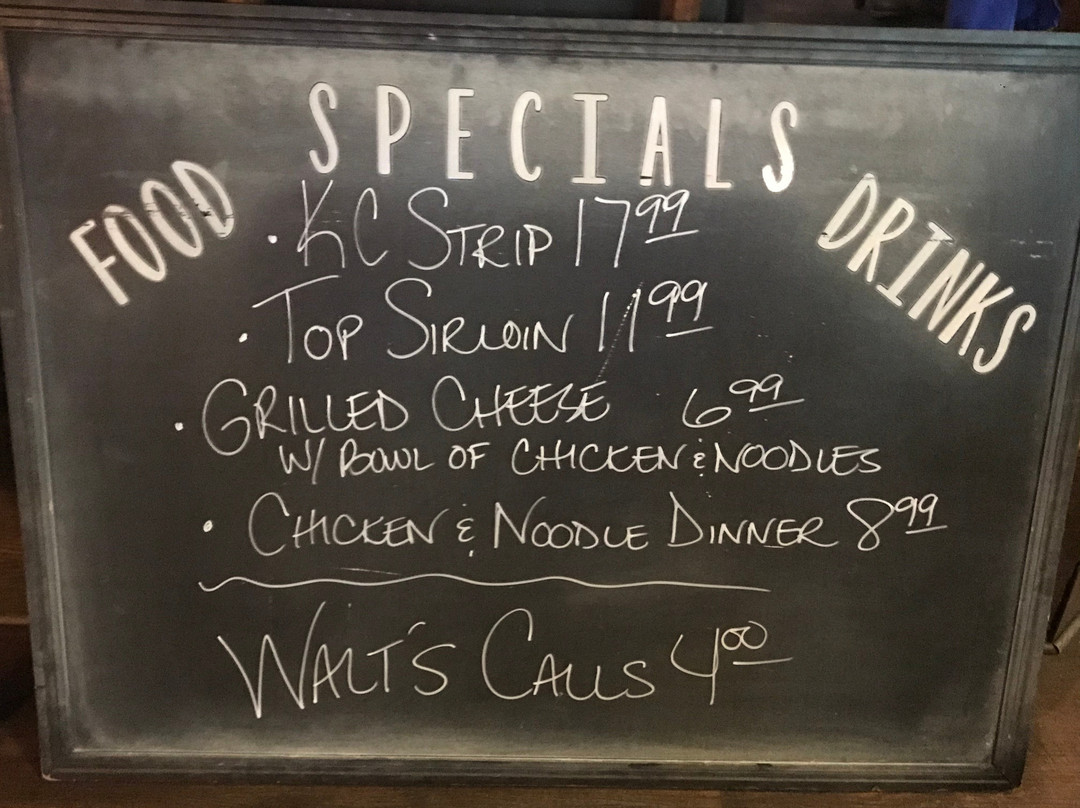 SPECIALS
FOOD
DRINKS
• KC STRIP 17.99
• TOP SIRLOIN 11.99
• GRILLED CHEESE 6.99
W/ BOWL OF CHICKEN & NOODLES
• CHICKEN & NOODLE DINNER 8.99
WALT'S CALLS 4.00